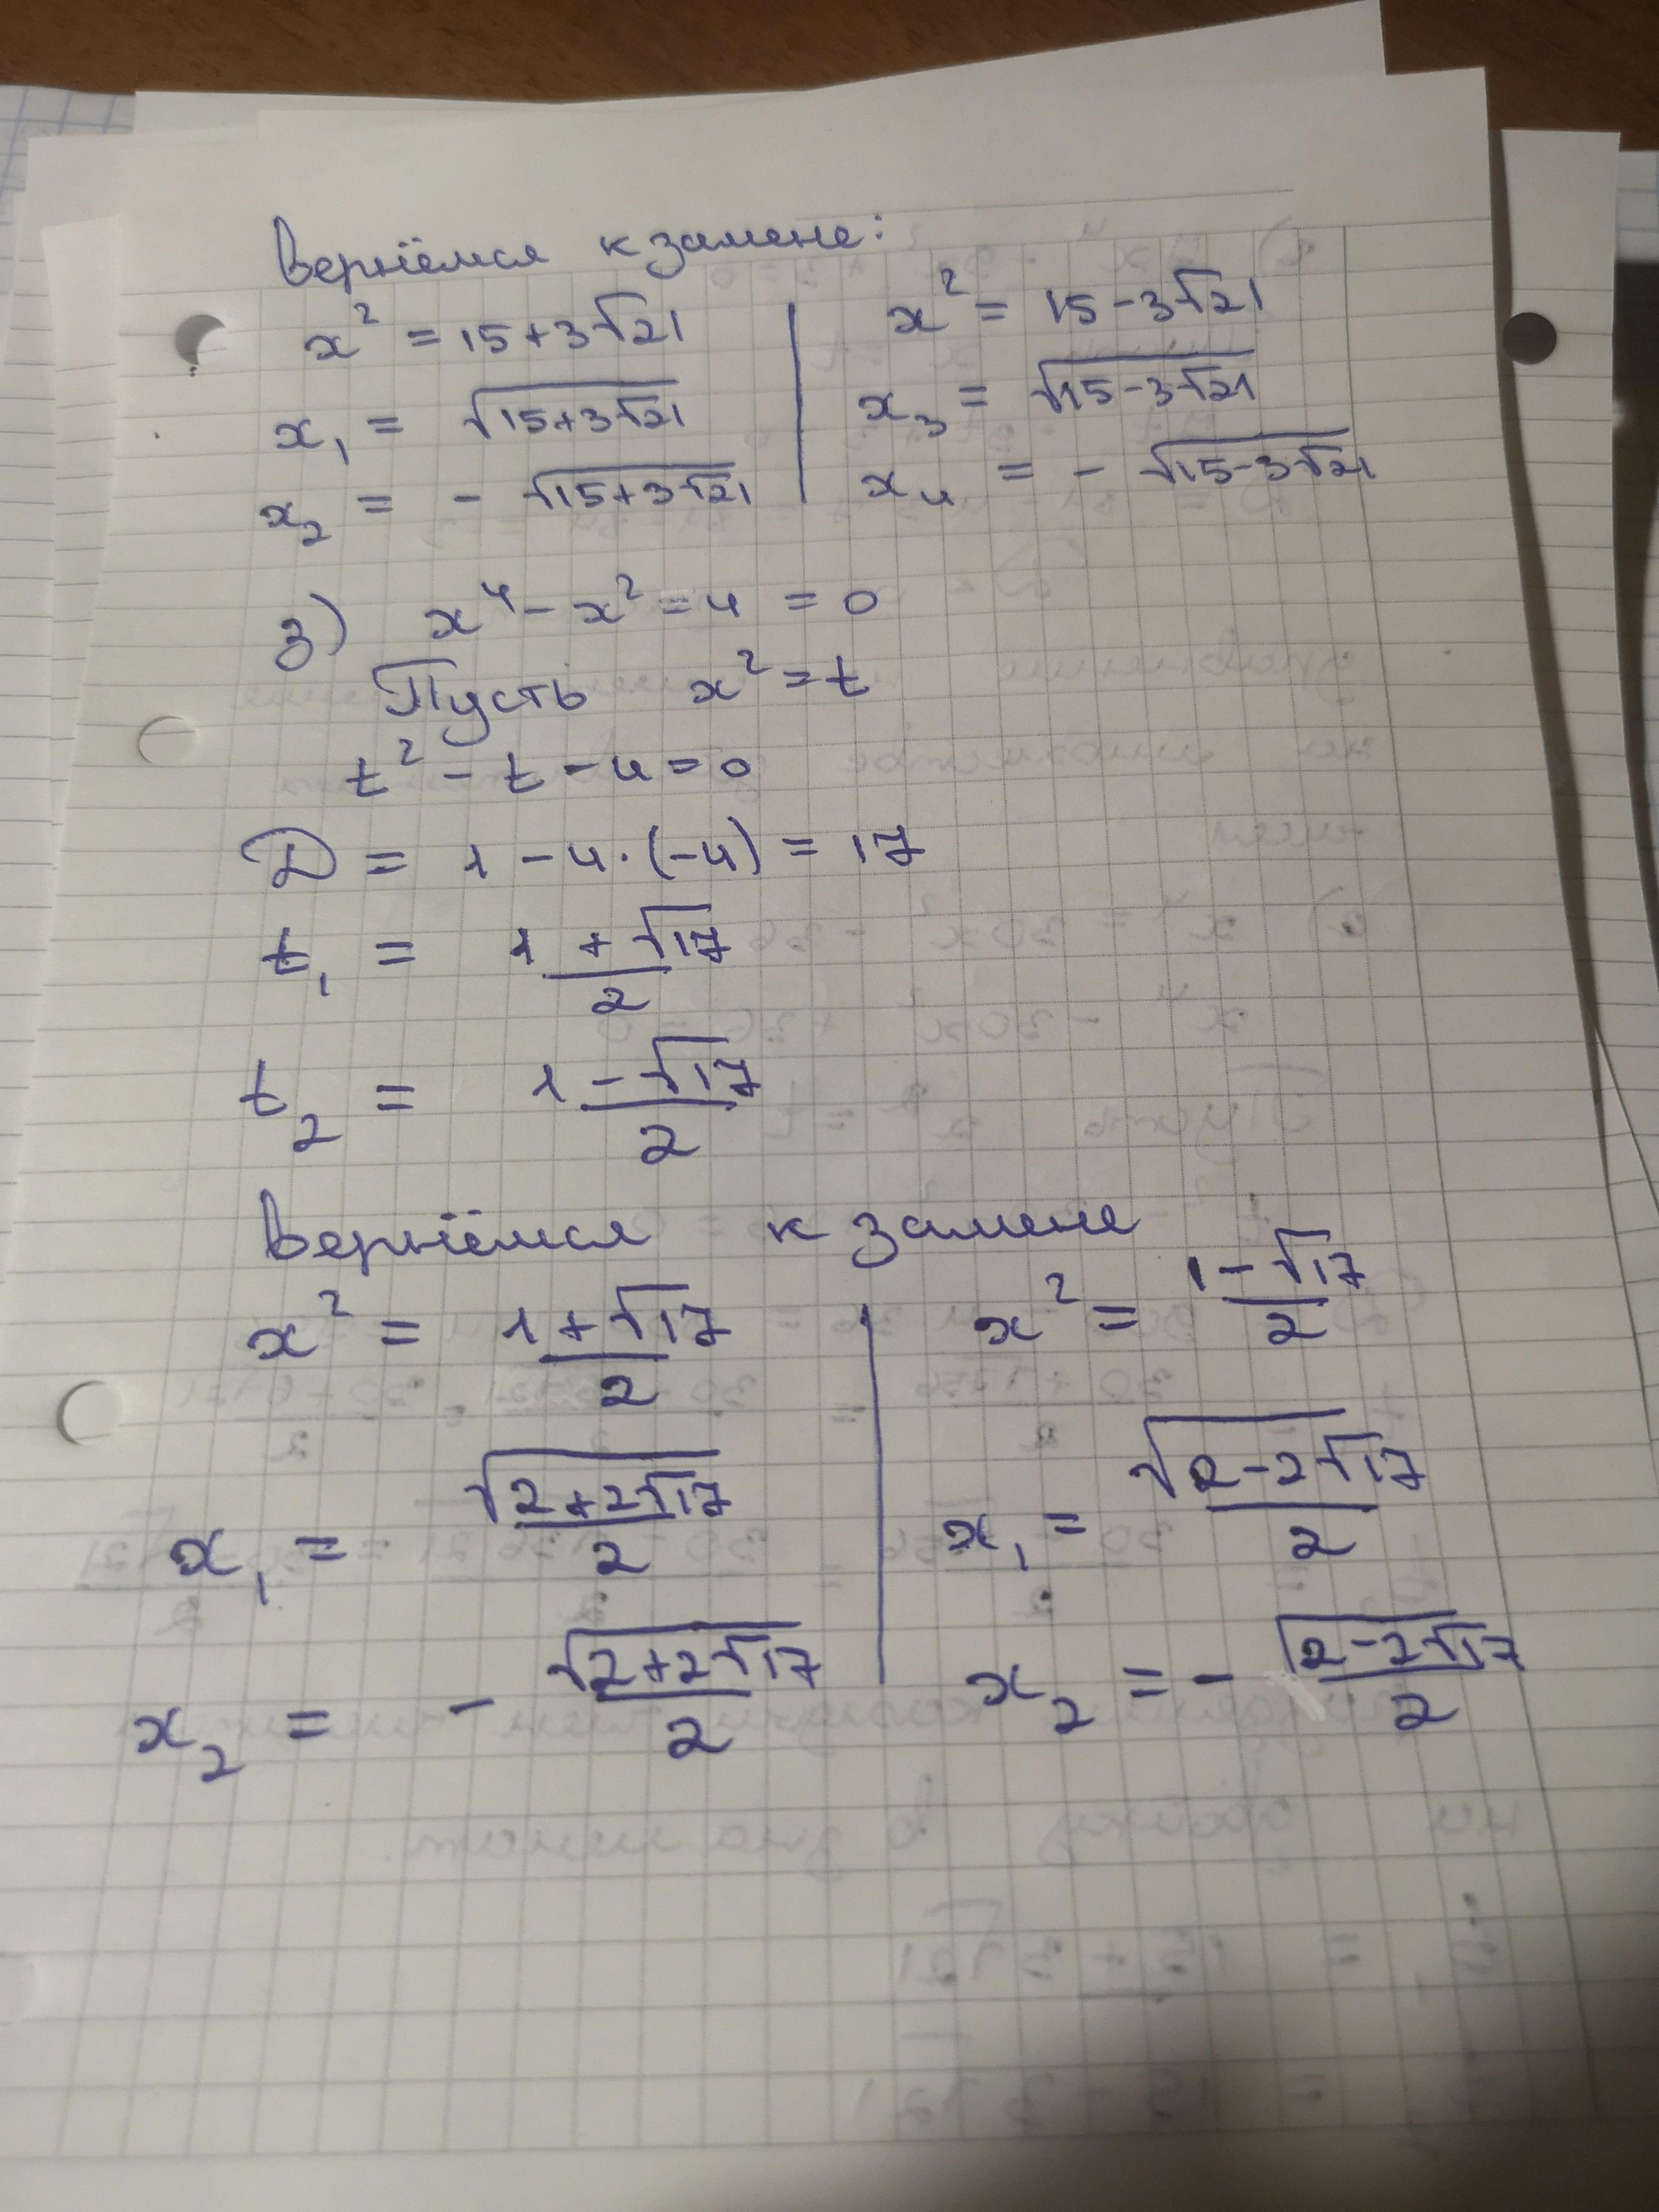 Вернёмся к замене:
x² = 15+3√21 | x² = 15-3√21
x₁ = √(15+3√21) | x₃ = √(15-3√21)
x₂ = - √(15+3√21) | x₄ = - √(15-3√21)
3) x⁴ - x² = 4 = 0
Пусть x² = t
t² - t - 4 = 0
D = 1 - 4·(-4) = 17
t₁ = (1 + √17)/2
t₂ = (1 - √17)/2
Вернёмся к замене
x² = (1+√17)/2 | x² = (1-√17)/2
x₁ = √(2+2√17)/2 | x₁ = √(2-2√17)/2
x₂ = - √(2+2√17)/2 | x₂ = - √(2-2√17)/2